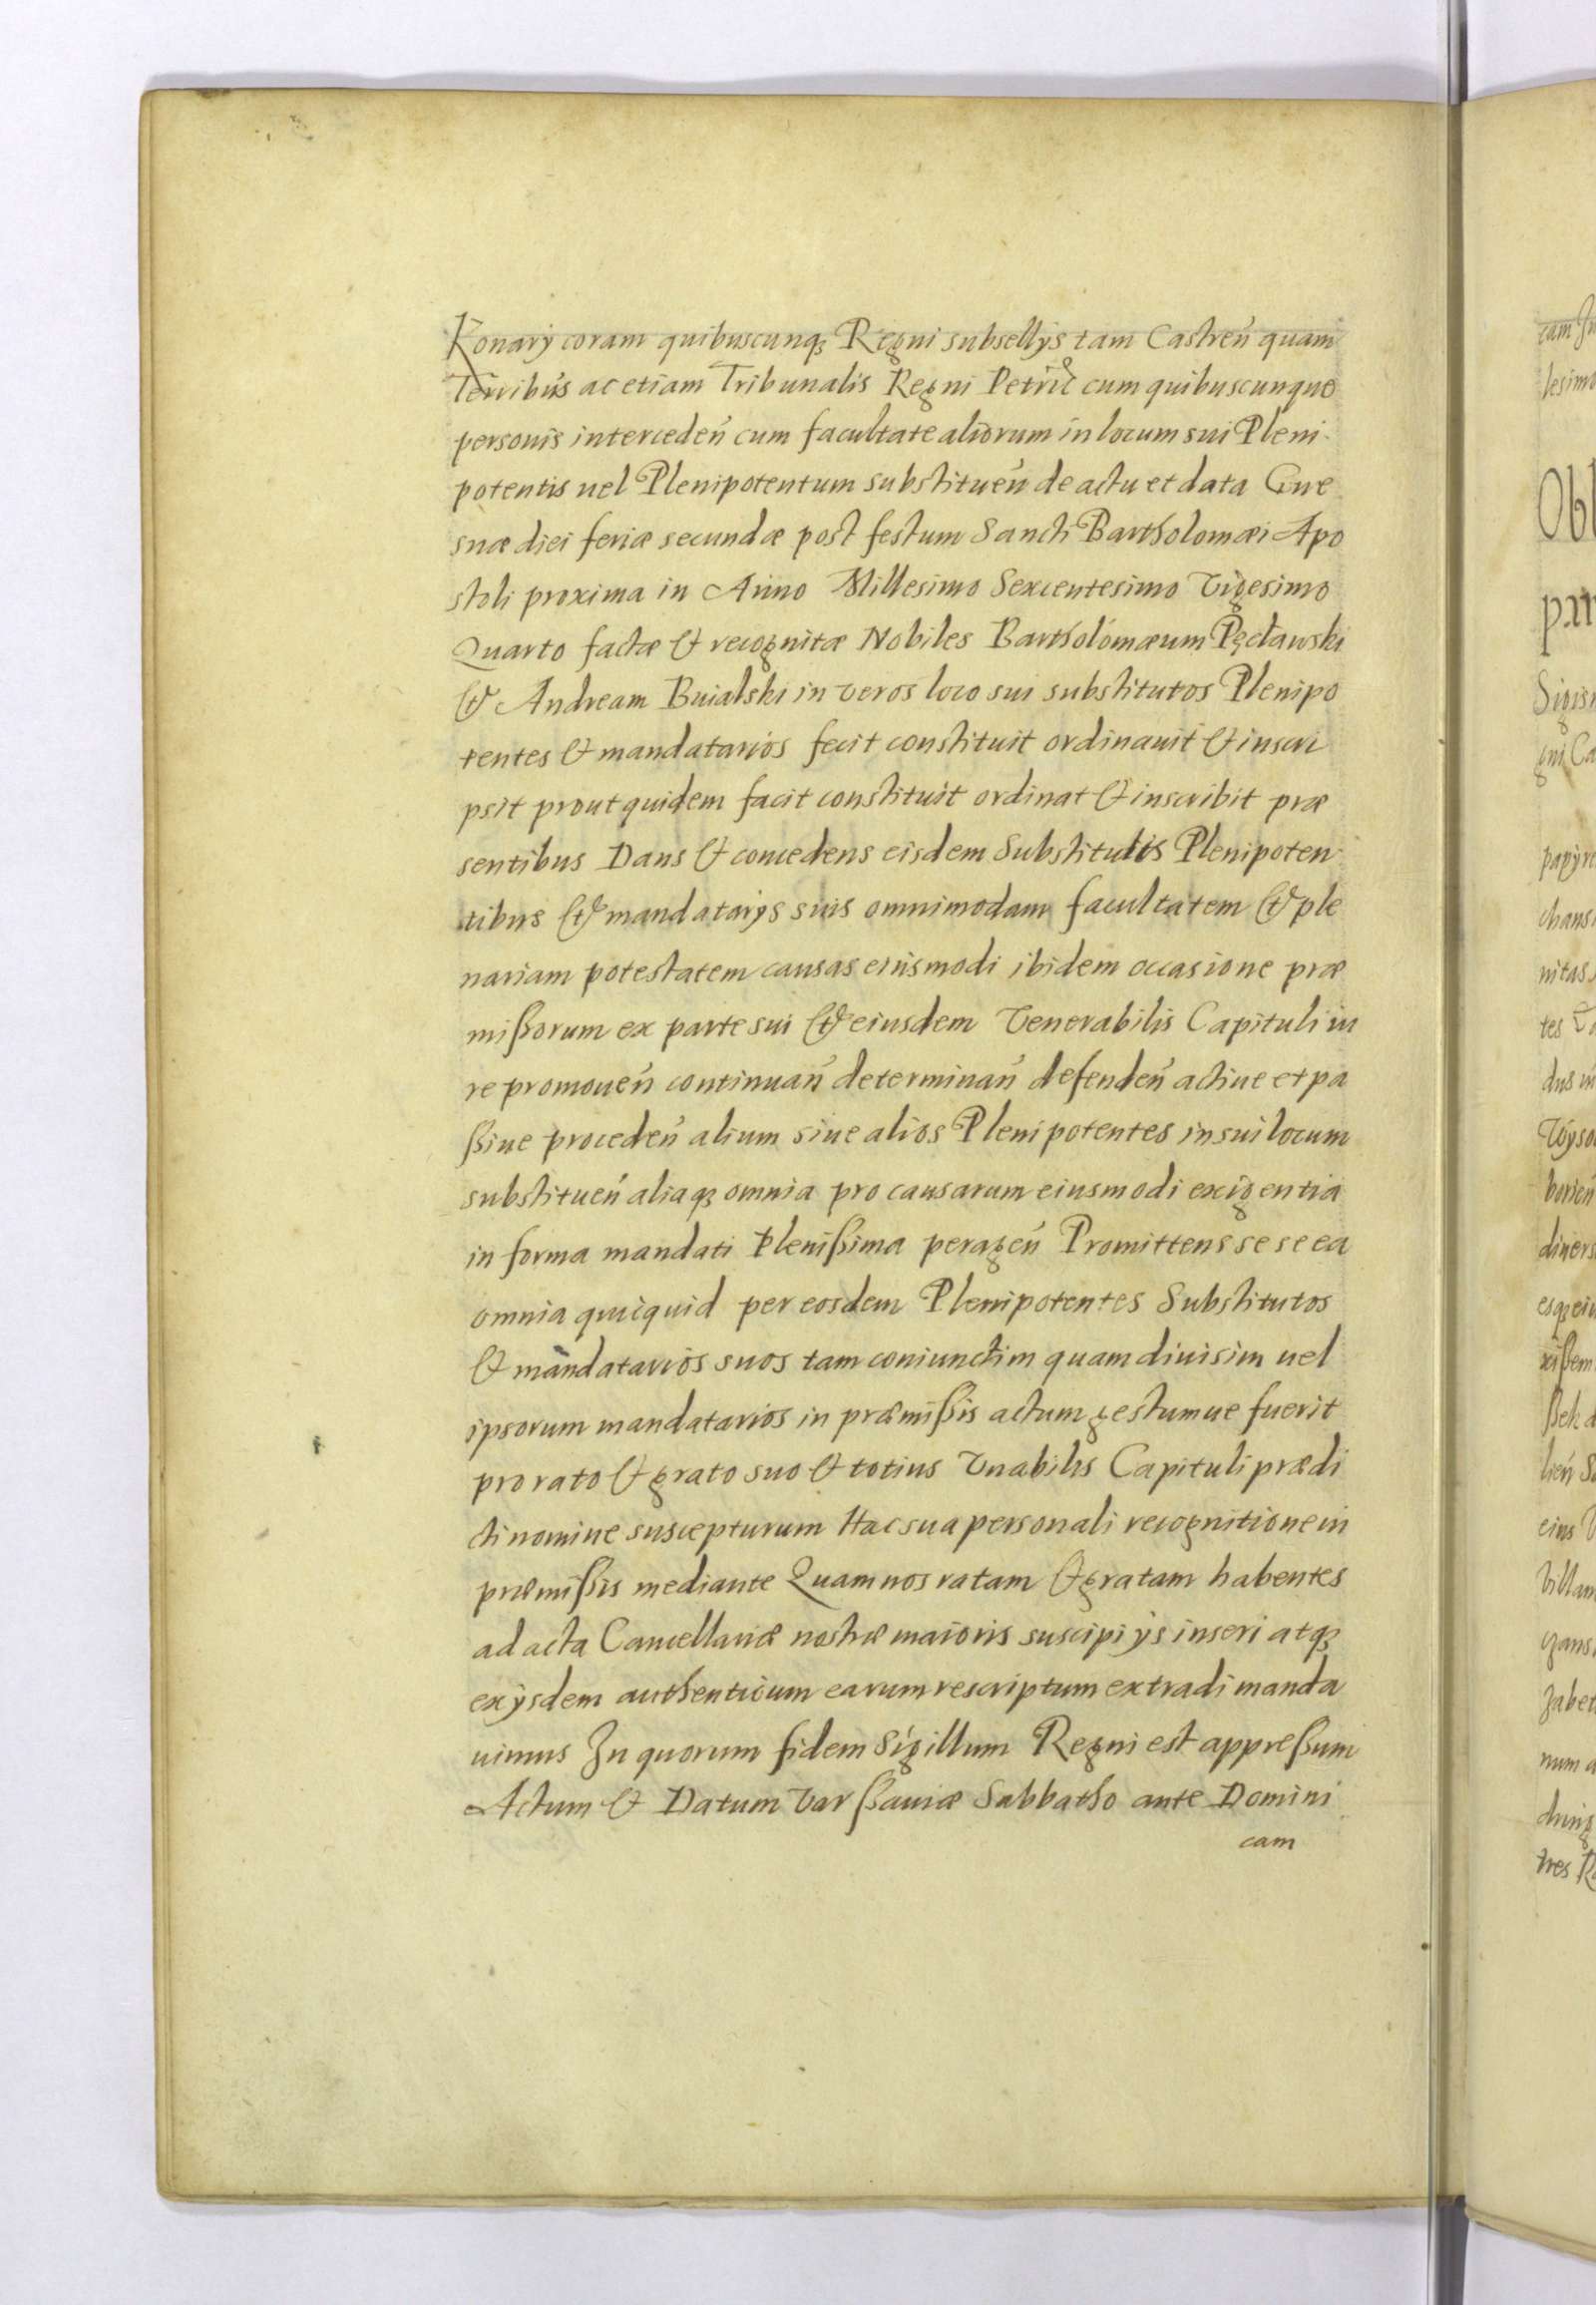 Konary coram quibuscunqꝫ Regni subsellÿs tam Castreń quam
Terribus ac etiam Tribunalis Regni Petric̃ cum quibuscunque
personis interceden̄ cum facultate aliorum in locum sui Pleni-
potentis uel Plenipotentum substituen̄ de actu et data Gne
snæ diei feriæ secundæ post festum Sancti Bartholomæi Apo
stoli proxima in Anno Millesimo Sexcentesimo Vigesimo
Quarto factæ & recognitæ Nobiles Bartholomæum Pęcławski
& Andream Buialski in veros loco sui substitutos Plenipo
tentes & mandatarios fecit constituit ordinauit & inscri
psit prout quidem facit constituit ordinat & inscribit præ
sentibus Dans & concedens eisdem Substitutis Plenipoten
tibus & mandatarÿs suis omnimodam facultatem & ple
nariam potestatem causas eiusmodi ibidem occasione præ
mißorum ex parte sui & eiusdem Venerabilis Capituli in
re promouen̄ continuan̄ determinan̄ defenden̄ actiue et pa
ßiue proceden̄ alium siue alios Plenipotentes in sui locum
substituen̄ aliaqꝫ omnia pro causarum eiusmodi exigentia
in forma mandati plenißima peragen̄ Promittens sese ea
omnia quicquid per eosdem Plenipotentes Substitutos
& mandatarios suos tam coniunctim quam diuisim uel
ipsorum mandatarios in præmißis actum gestumue fuerit
pro rato & grato suo & totius Vnabilis Capituli prædi
cti nomine suscepturum Hac sua personali recognitione in
præmißis mediante Quam nos ratam & gratam habentes
ad acta Cancellariæ nostræ maioris suscipi ÿs inseri atqꝫ
ex ÿsdem authenticum earum rescriptum extradi manda
uimus In quorum fidem Sigillum Regni est appreßum
Actum & Datum Varßauiæ Sabbatho ante Domini
cam